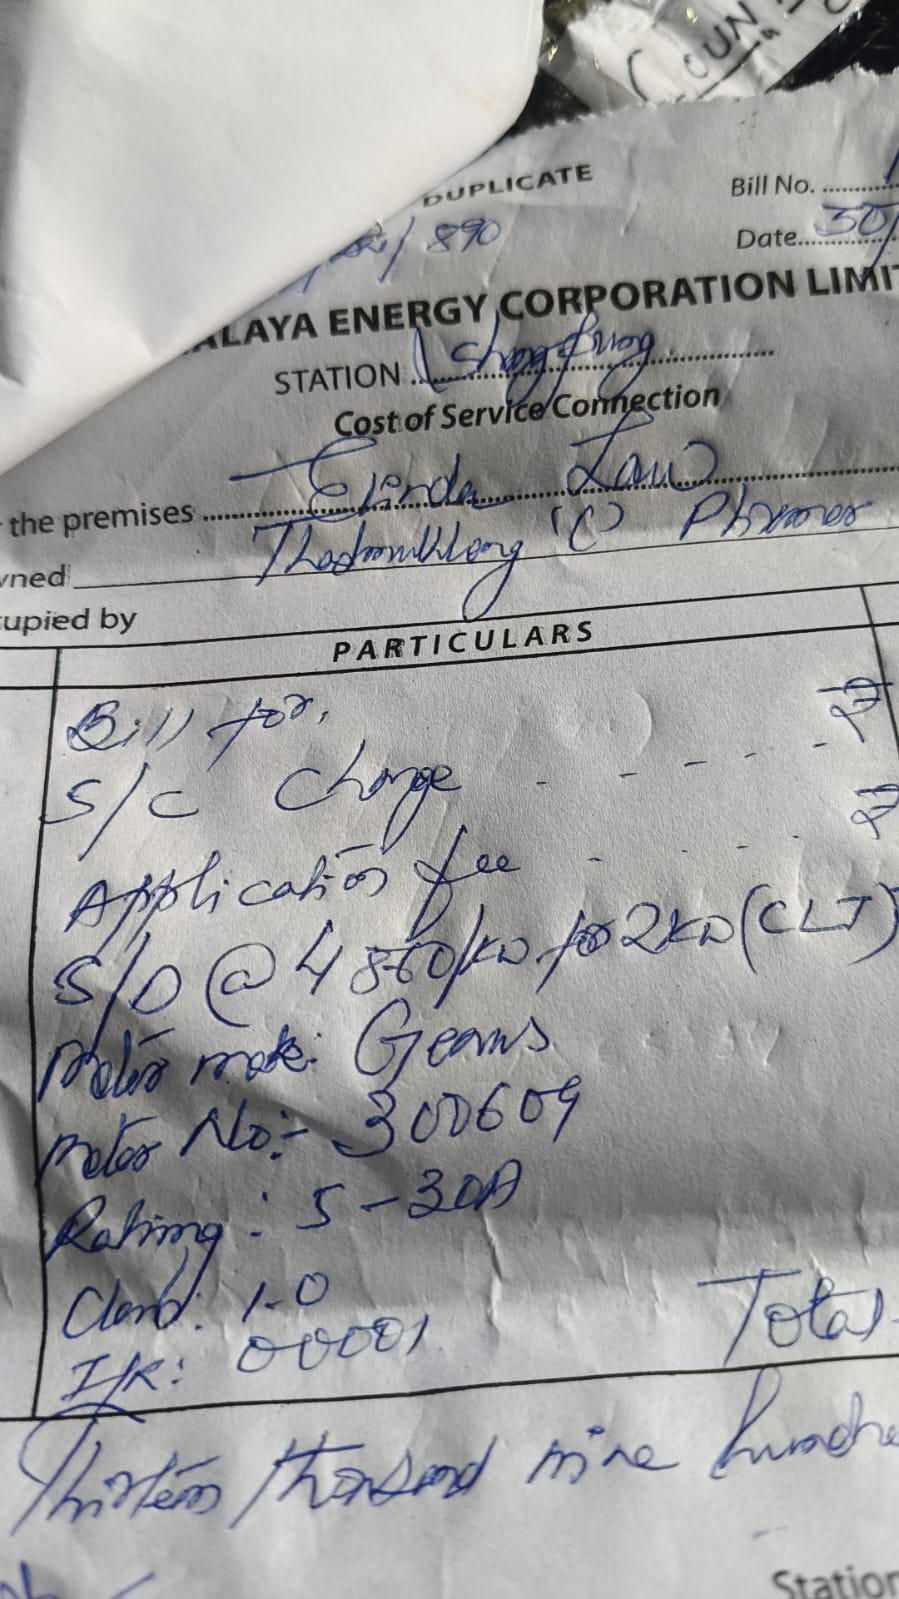 COUN
DUPLICATE
Bill No.
/ 890
Date 30/
ALAYA ENERGY CORPORATION LIMIT
STATION
Cost of Service Connection
the premises Elinda Law
wned (C)
cupied by
PARTICULARS
Bill for,
S/C Charge
Application fee
S/D @ 4 860/KW for 2KW (CLT)
Meter make: Genus
Meter No:- 300609
Rating: 5-30A
Class: 1.0
I/R: 00001
Total
Thirteen thousand nine hundre
Station